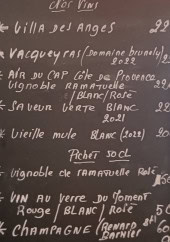 Nos Vins
* Villa des Anges 22
* Vacqueyras (Domaine brunely)
2022
* Air du Cap Côte de Provence
Vignoble Ramatuelle
/Blanc/Rosé
* Saveur Verte Blanc
2021
* Vieille mule Blanc (2022) 20
Pichet 50 cl
* Vignoble de ramatuelle Rosé
* Vin au verre du moment
Rouge / Blanc / Rosé 5
* Champagne (Renard
Barnier